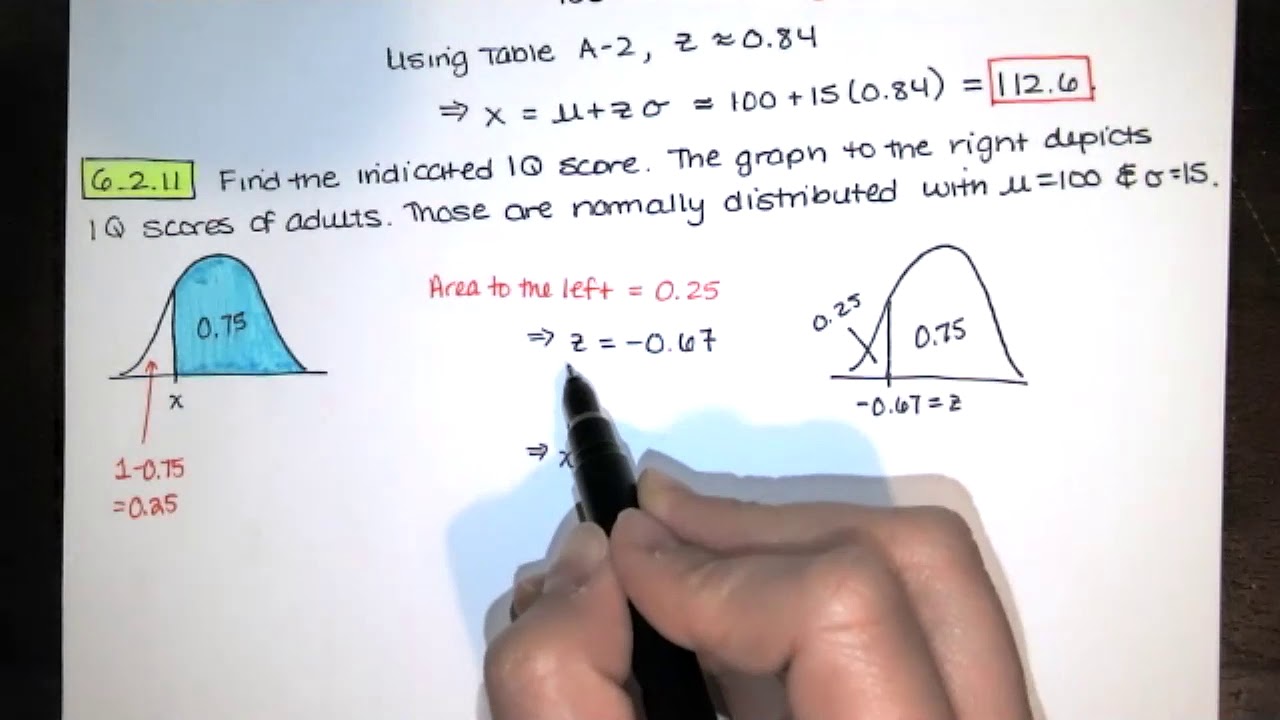 Using Table A-2, z ≈ 0.84
⇒ x = μ+zσ ≈ 100+15(0.84) = 112.6.
6.2.11 Find the indicated IQ score. The graph to the right depicts
IQ scores of adults. Those are normally distributed with μ=100 & σ=15.
0.75
x
1-0.75
=0.25
Area to the left = 0.25
⇒ z = -0.67
⇒ x
0.25
0.75
-0.67=z